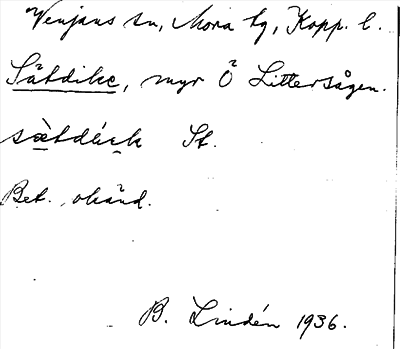 Venjans sn, Mora tg, Kopp. l.
Sätdike, myr Ö Littersågen.
sæ̀tdìk St.
Bet. okänd.
B. Lindén 1936.